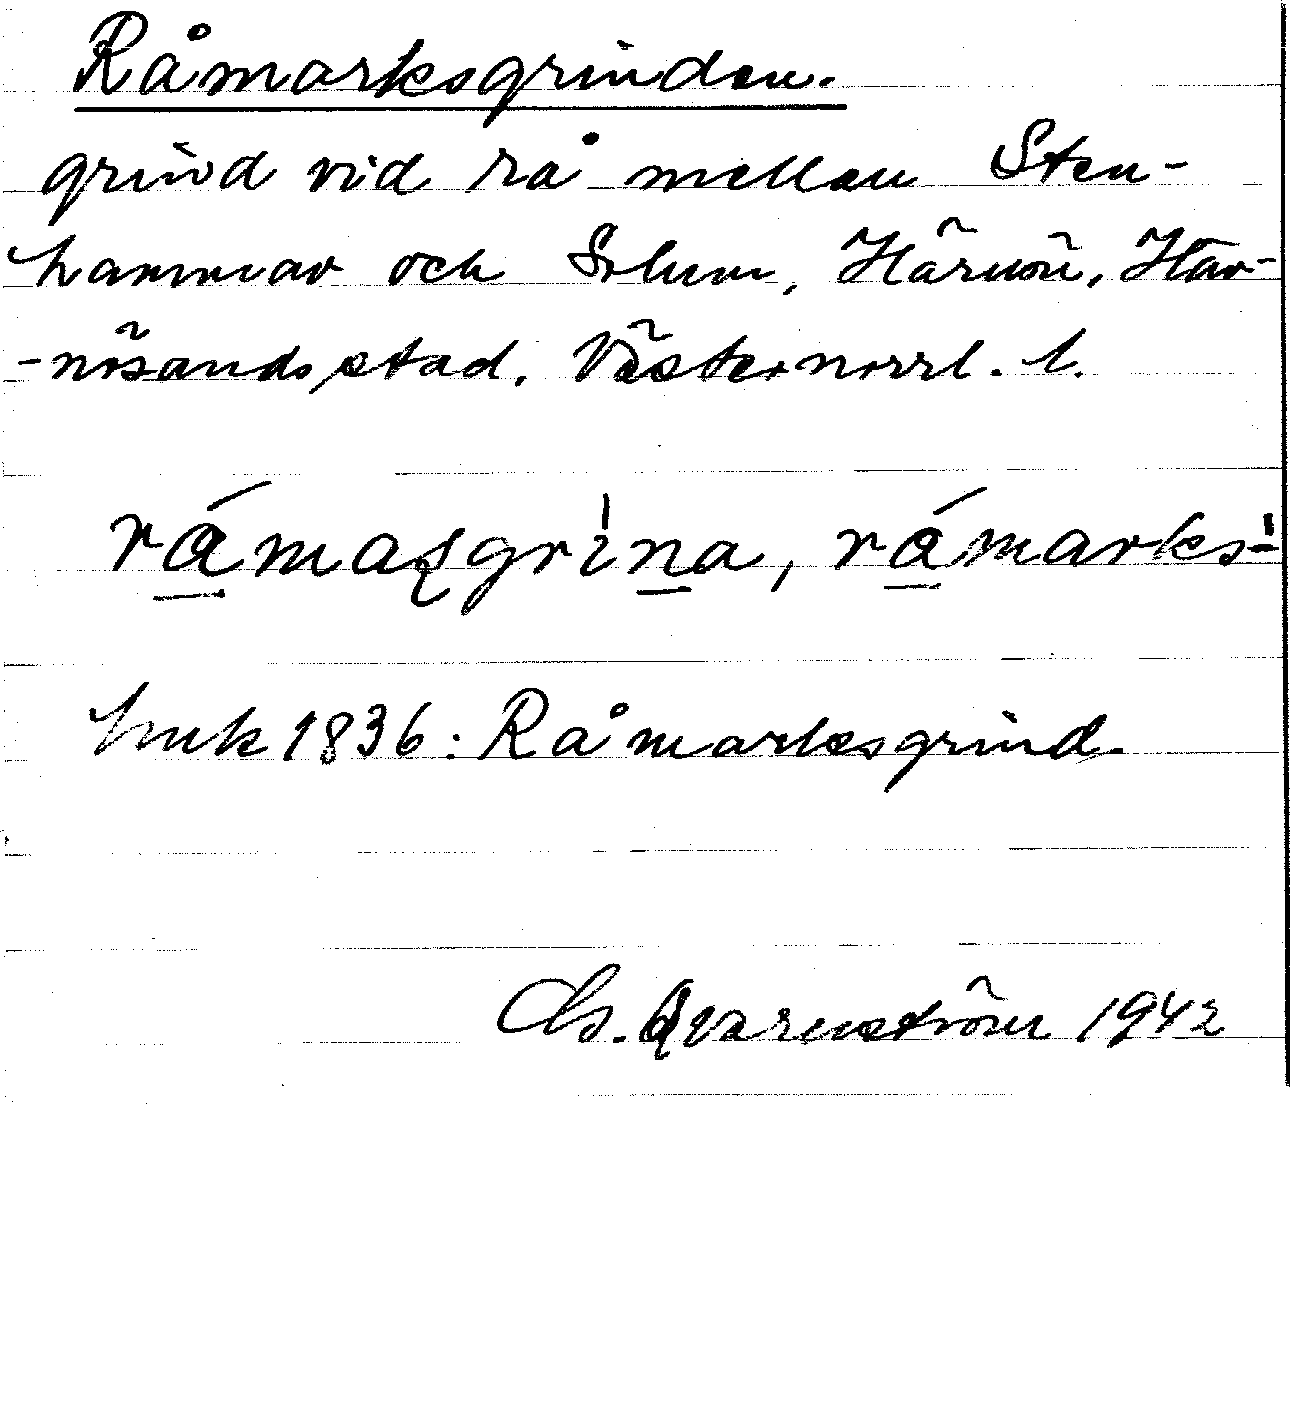 Råmarksgrinden.
grind vid rå mellan Sten-
hammar och Solum, Härnön, Här-
-nösands stad, Västernorrl. l.
rámaʂgrìna, rámarks-
hmk 1836: Råmarksgrind.
Chs. Qvarnström 1942